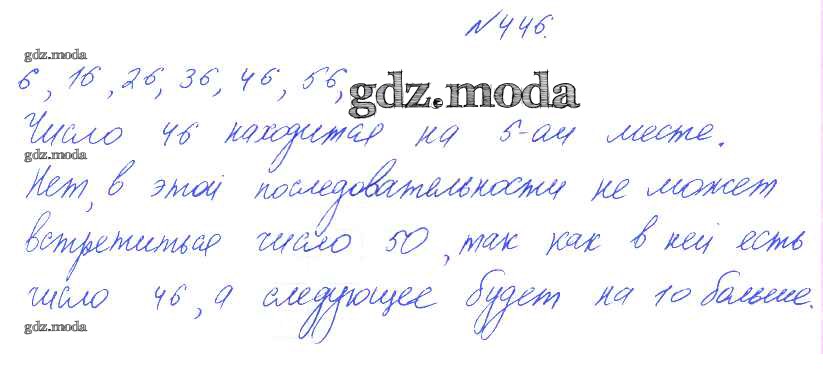 №446.
gdz.moda
6, 16, 26, 36, 46, 56,
gdz.moda
Число 46 находится на 5-ом месте.
gdz.moda
Нет, в этой последовательности не может
встретиться число 50, так как в ней есть
число 46, а следующее будет на 10 больше.
gdz.moda